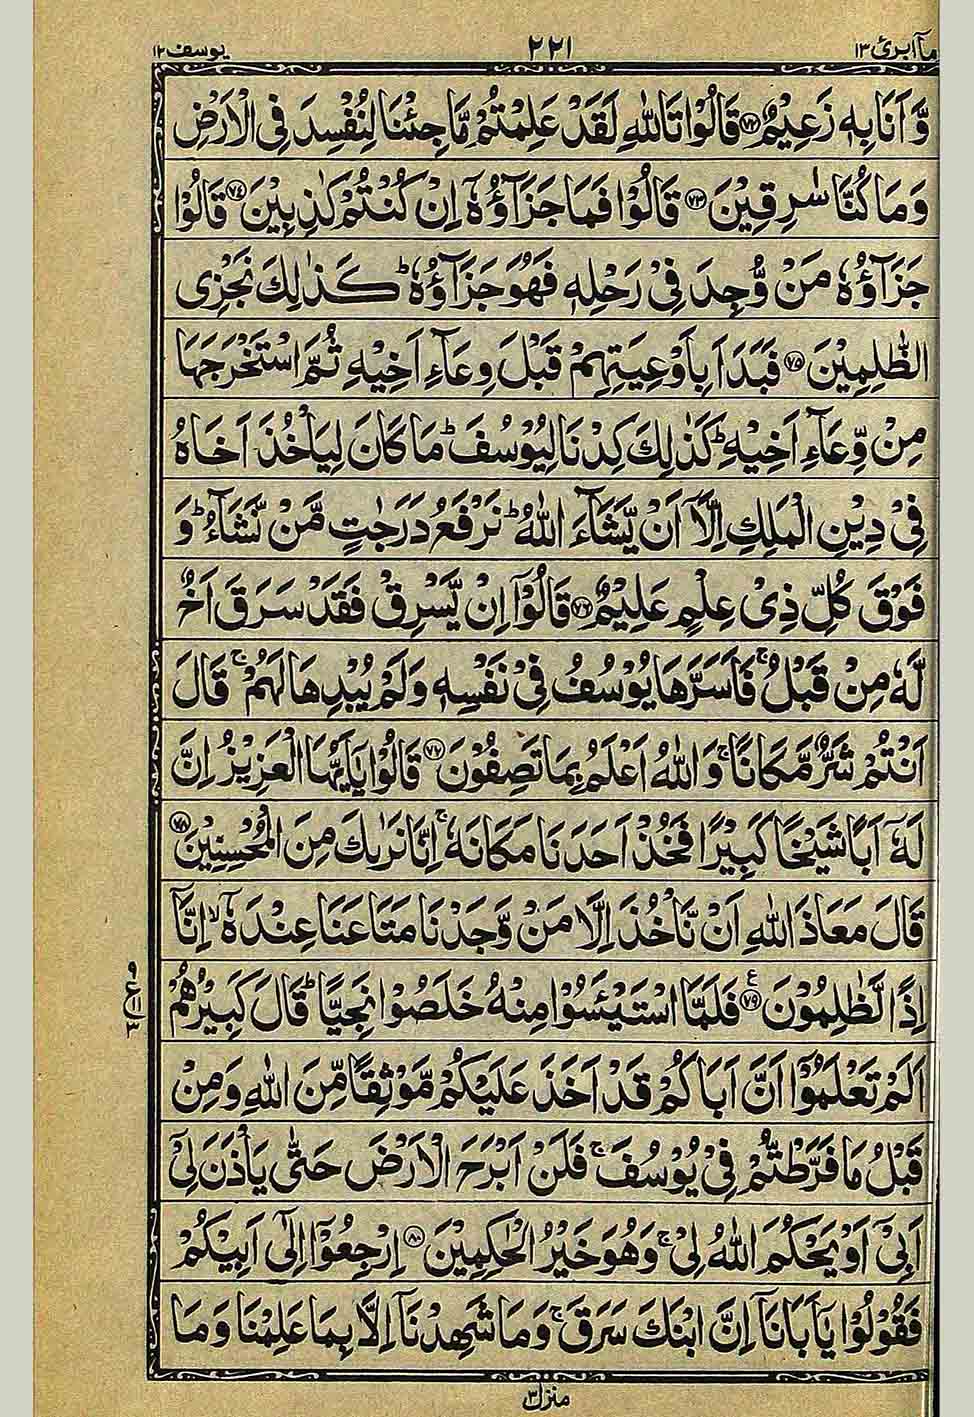 مآ ابرئ ١٣
٢٢١
يوسف ١٢
وَّ اَنَا بِهٖ زَعِيْمٌ ﴿٧٢﴾ قَالُوْا تَاللّٰهِ لَقَدْ عَلِمْتُمْ مَّا جِئْنَا لِنُفْسِدَ فِى الْاَرْضِ
وَ مَا كُنَّا سٰرِقِيْنَ ﴿٧٣﴾ قَالُوْا فَمَا جَزَآؤُهٗۤ اِنْ كُنْتُمْ كٰذِبِيْنَ ﴿٧٤﴾ قَالُوْا
جَزَآؤُهٗ مَنْ وُّجِدَ فِىْ رَحْلِهٖ فَهُوَ جَزَآؤُهٗ ؕ كَذٰلِكَ نَجْزِى
الظّٰلِمِيْنَ ﴿٧٥﴾ فَبَدَاَ بِاَوْعِيَتِهِمْ قَبْلَ وِعَآءِ اَخِيْهِ ثُمَّ اسْتَخْرَجَهَا
مِنْ وِّعَآءِ اَخِيْهِ ؕ كَذٰلِكَ كِدْنَا لِيُوْسُفَ ؕ مَا كَانَ لِيَاْخُذَ اَخَاهُ
فِىْ دِيْنِ الْمَلِكِ اِلَّاۤ اَنْ يَّشَآءَ اللّٰهُ ؕ نَرْفَعُ دَرَجٰتٍ مَّنْ نَّشَآءُ ؕ وَ
فَوْقَ كُلِّ ذِىْ عِلْمٍ عَلِيْمٌ ﴿٧٦﴾ قَالُوْۤا اِنْ يَّسْرِقْ فَقَدْ سَرَقَ اَخٌ
لَّهٗ مِنْ قَبْلُ ۚ فَاَسَرَّهَا يُوْسُفُ فِىْ نَفْسِهٖ وَ لَمْ يُبْدِهَا لَهُمْ ۚ قَالَ
اَنْتُمْ شَرٌّ مَّكَانًا ۚ وَ اللّٰهُ اَعْلَمُ بِمَا تَصِفُوْنَ ﴿٧٧﴾ قَالُوْا يٰۤاَيُّهَا الْعَزِيْزُ اِنَّ
لَهٗۤ اَبًا شَيْخًا كَبِيْرًا فَخُذْ اَحَدَنَا مَكَانَهٗ ۚ اِنَّا نَرٰىكَ مِنَ الْمُحْسِنِيْنَ ﴿٧٨﴾
قَالَ مَعَاذَ اللّٰهِ اَنْ نَّاْخُذَ اِلَّا مَنْ وَّجَدْنَا مَتَاعَنَا عِنْدَهٗۤ ۙ اِنَّاۤ
اِذًا لَّظٰلِمُوْنَ ﴿٧٩﴾ فَلَمَّا اسْتَيْـَٔسُوْا مِنْهُ خَلَصُوْا نَجِيًّا ؕ قَالَ كَبِيْرُهُمْ
اَلَمْ تَعْلَمُوْۤا اَنَّ اَبَاكُمْ قَدْ اَخَذَ عَلَيْكُمْ مَّوْثِقًا مِّنَ اللّٰهِ وَ مِنْ
قَبْلُ مَا فَرَّطْتُّمْ فِىْ يُوْسُفَ ۚ فَلَنْ اَبْرَحَ الْاَرْضَ حَتّٰى يَاْذَنَ لِىْۤ
اَبِىْۤ اَوْ يَحْكُمَ اللّٰهُ لِىْ ۚ وَ هُوَ خَيْرُ الْحٰكِمِيْنَ ﴿٨٠﴾ اِرْجِعُوْۤا اِلٰۤى اَبِيْكُمْ
فَقُوْلُوْا يٰۤاَبَانَاۤ اِنَّ ابْنَكَ سَرَقَ ۚ وَ مَا شَهِدْنَاۤ اِلَّا بِمَا عَلِمْنَا وَ مَا
منزل ٣